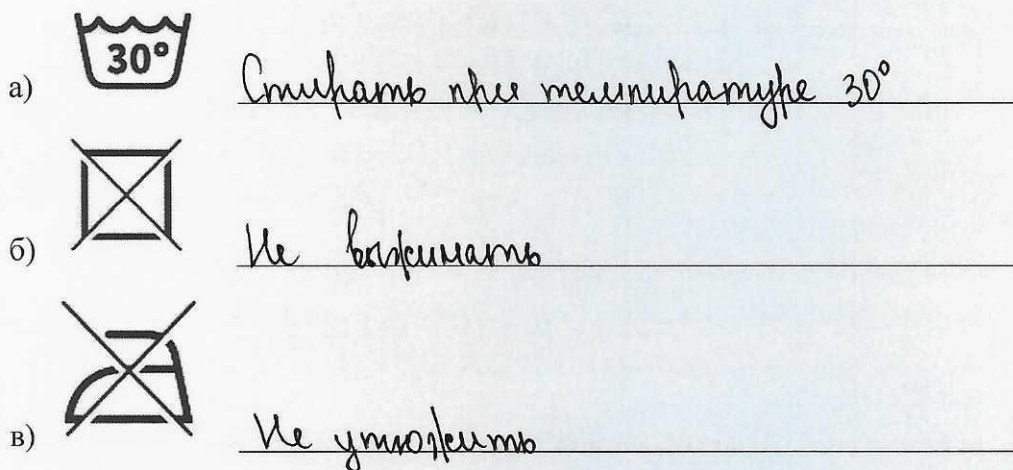 30°
а) Стирать при темпиратуре 30°
б) Не выжимать
в) Не утюжить